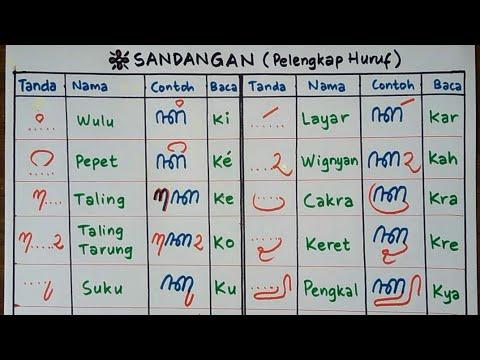 SANDANGAN (Pelengkap Huruf)
Tanda Nama Contoh Baca Tanda Nama Contoh Baca
ꦶ..... Wulu ꦏꦶ Ki ꦂ..... Layar ꦏꦂ Kar
ꦼ..... Pepet ꦏꦼ Ké ....ꦃ Wignyan ꦏꦃ Kah
ꦺ.... Taling ꦏꦺ Ke ꦿ..... Cakra ꦏꦿ Kra
ꦺ.....ꦴ Taling Tarung ꦏꦺꦴ Ko ꦽ..... Keret ꦏꦽ Kre
.....ꦸ Suku ꦏꦸ Ku ꦾ..... Pengkal ꦏꦾ Kya